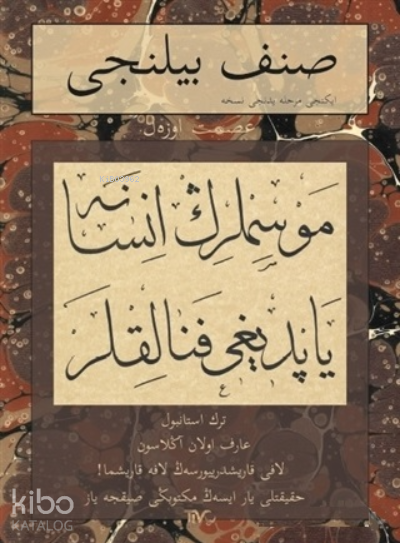 صنف بيلنجى
ايكنجى مرحله يدنجى نسخه
عصمت اوزل
موسملرڭ انسانه
ياپديغى فنالقلر
ترك استانبول
عارف اولان آڭلاسون
لافى قاريشديرييورسه‌ڭ لافه قاريشما!
حقيقتلى يار ايسه‌ڭ مكتوبڭى صيقجه ياز
kibo
KATALOG